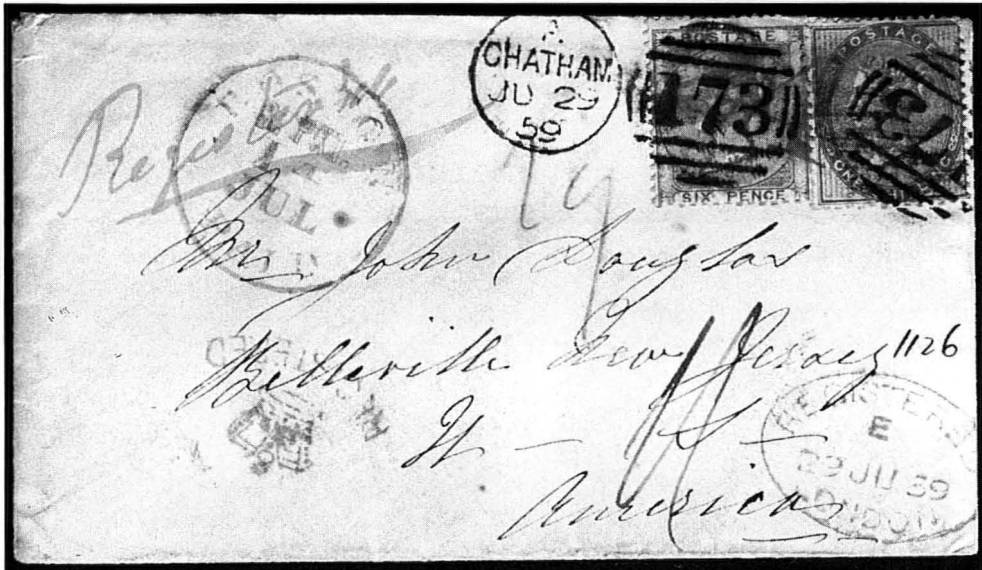 A
CHATHAM
JU 29
59
POSTAGE
173
SIX PENCE
POSTAGE
ONE
73
Registered
JUL
Mr John Douglas
Belleville New Jersey
1126
U - S -
America
REGISTERED
E
29 JU 59
LONDON